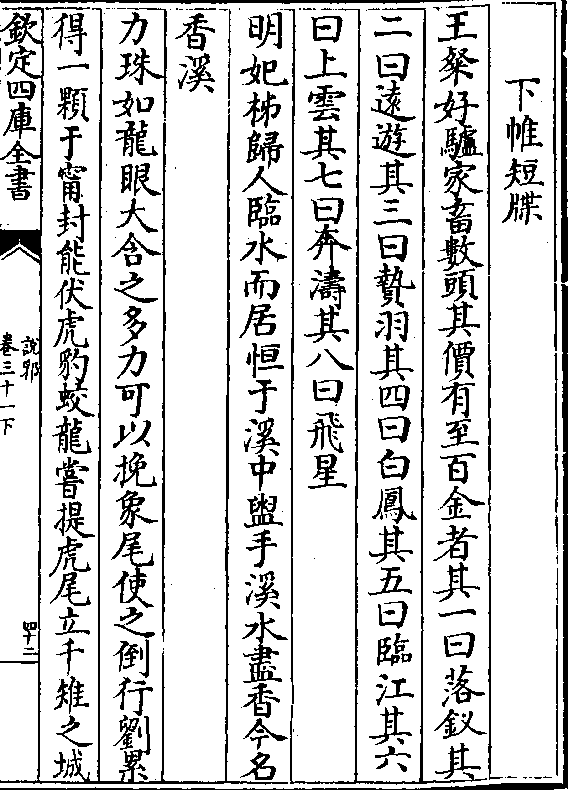 下帷短牒
王粲好驢家畜數頭其價有至百金者其一曰落釵其
二曰遠遊其三曰贄羽其四曰白鳳其五曰臨江其六
曰上雲其七曰奔濤其八曰飛星
明妃秭歸人臨水而居恒于溪中盥手溪水盡香今名
香溪
力珠如龍眼大含之多力可以挽象尾使之倒行劉累
得一顆于甯封能伏虎豹蛟龍嘗提虎尾立千雉之城
欽定四庫全書
說郛
卷三十一下
四十二